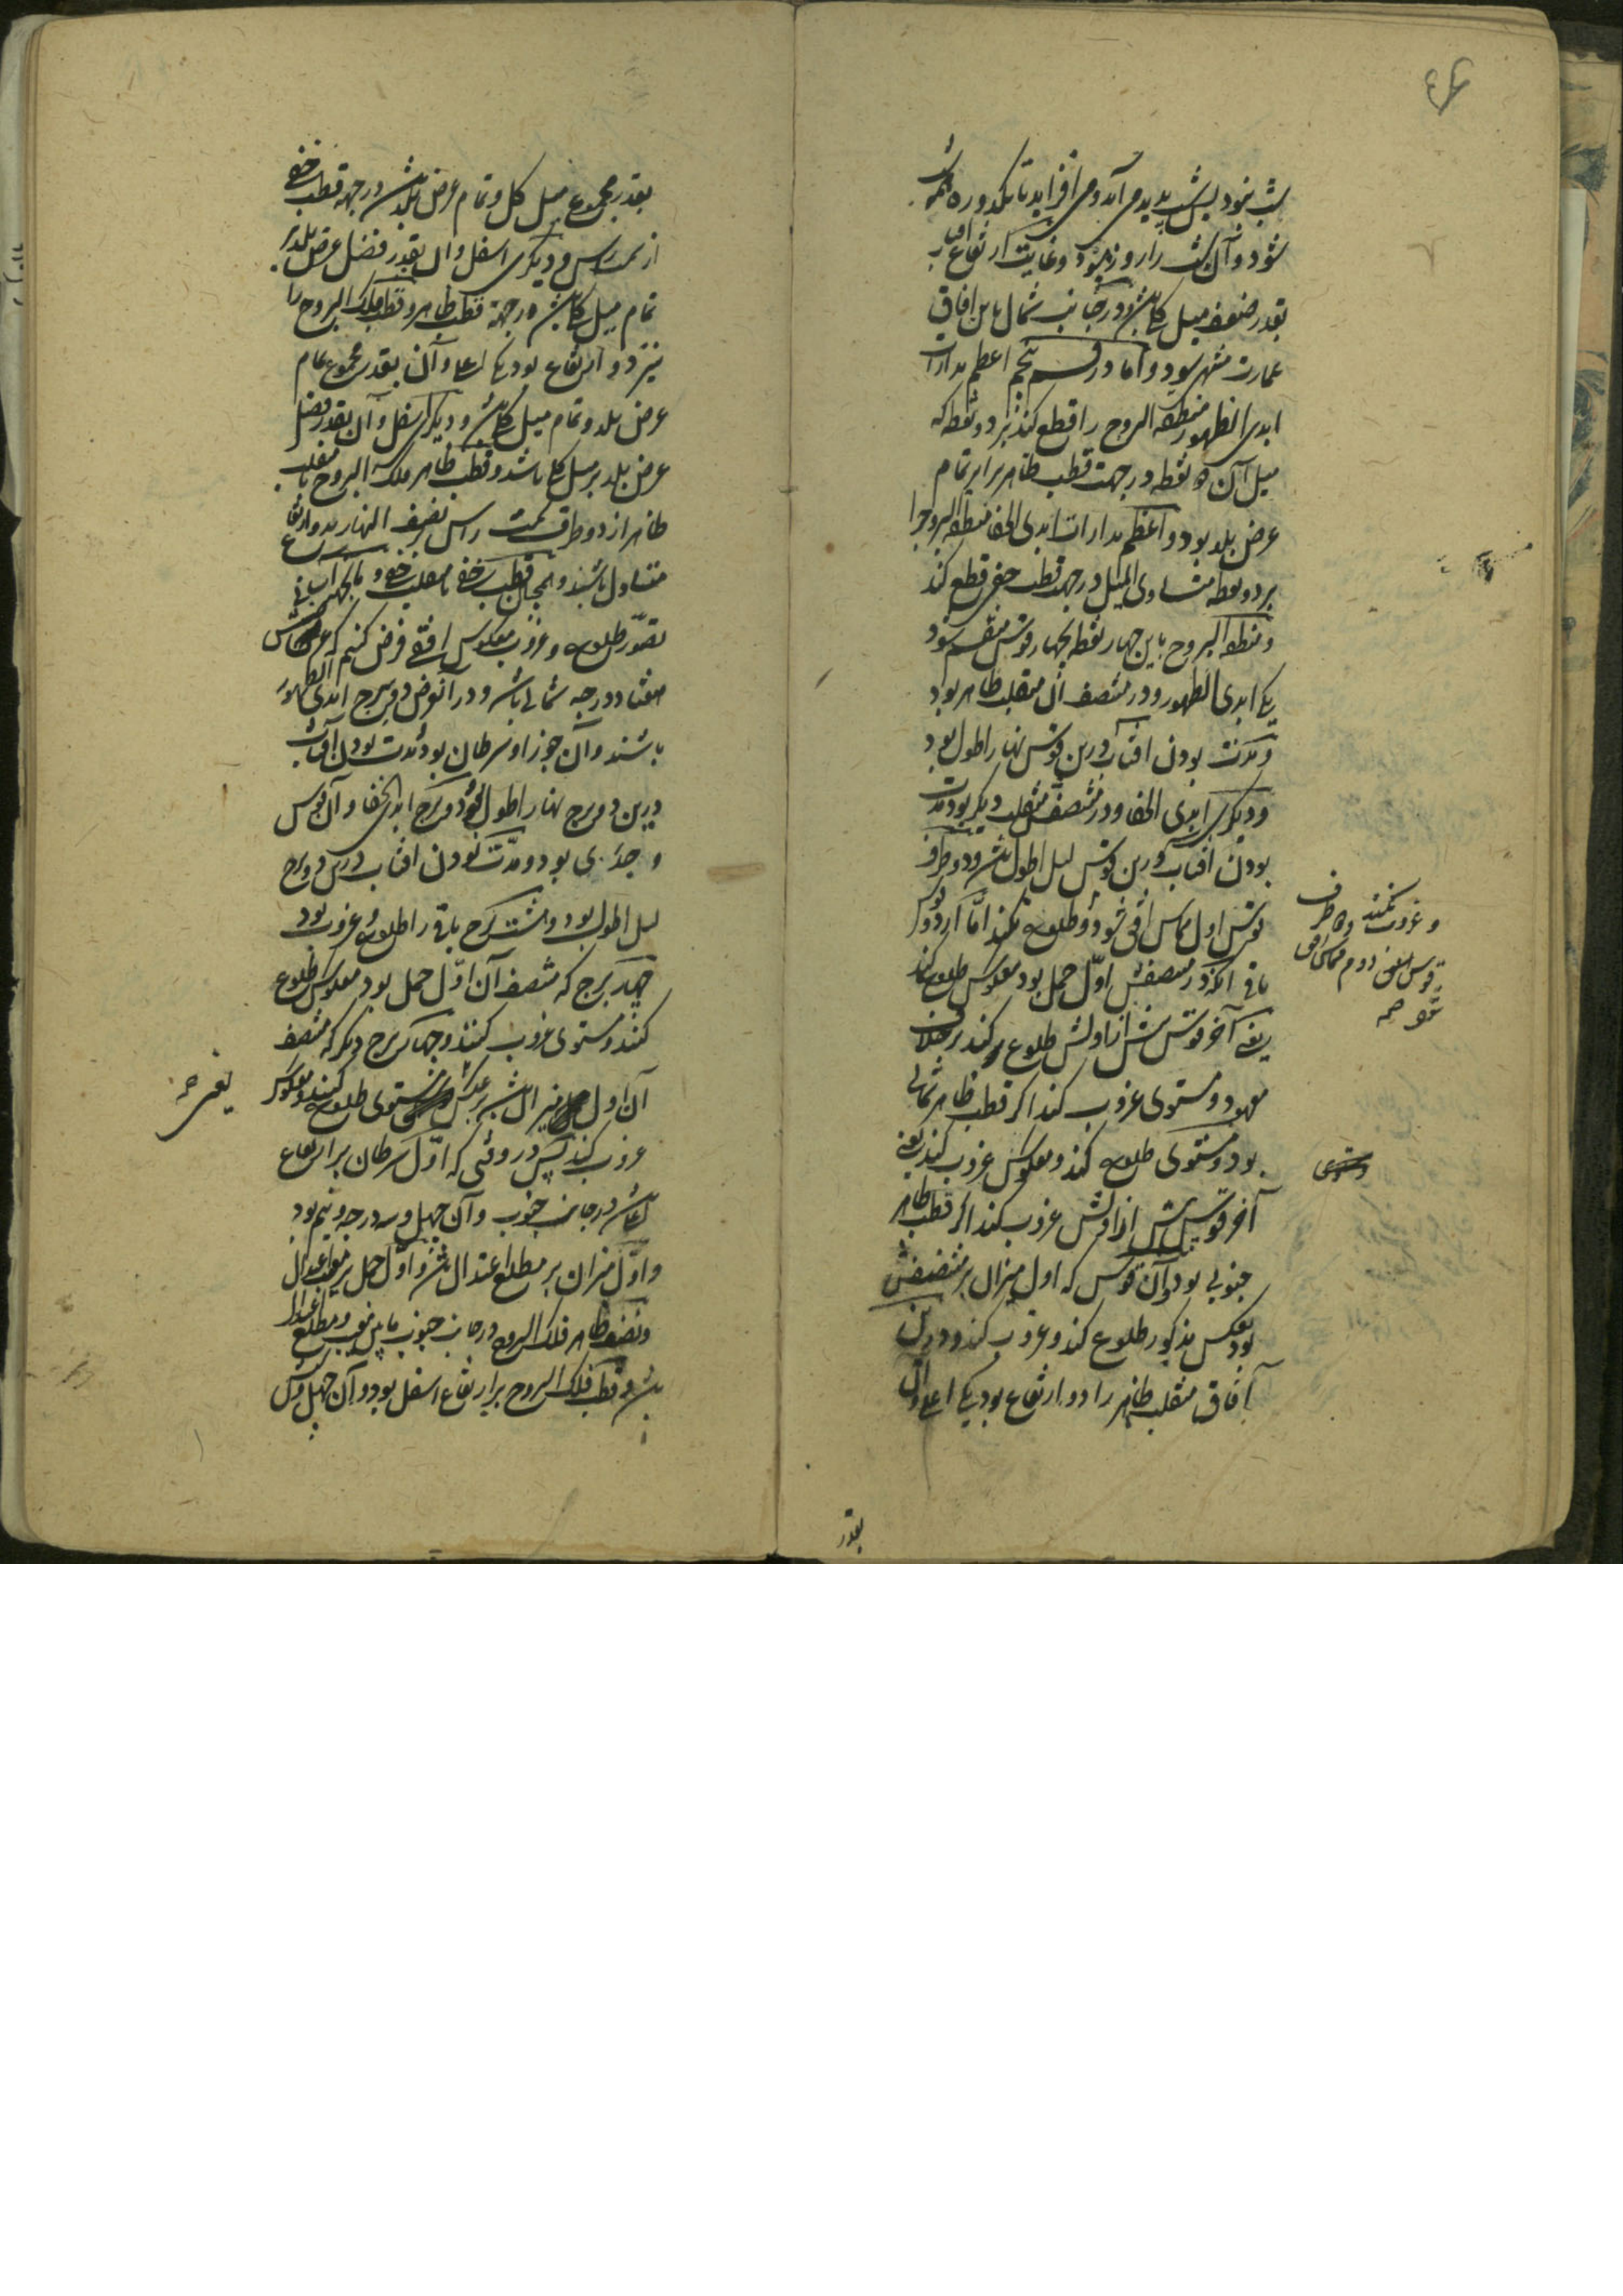 شب نبود پس شب پدید می آید و می افزاید تا یک دوره همه شب
شود و آن شب را روز نبود و غایت ارتفاع آفتاب
بقدر ضعف میل کلی باشد و در جانب شمال باین آفاق
عمارت منتهی شود و اما در قسم پنجم اعظم مدارات
ابدی الظهور منطقة البروج را قطع کند بر دو نقطه که
میل آن دو نقطه در جهت قطب ظاهر برابر تمام
عرض بلد بود و اعظم مدارات ابدی الخفا منطقة البروج را
بر دو نقطه متساوی المیل در جهة قطب خفی قطع کند
و منطقة البروج باین چهار نقطه بچهار قوس منقسم شود
یکی ابدی الظهور و در منتصف آن منقلب ظاهر بود
و مدت بودن آفتاب درین قوس نهار اطول بود
و دیگری ابدی الخفا و در منتصفش منقلب دیگر بود و مدت
بودن آفتاب درین قوس لیل اطول باشد و دو طرف
قوس اول مماس افق شود و طلوع نکند اما از دو قوس
باقی آنکه در منتصفش اول حمل بود معکوس طلوع کند
یعنی آخر قوس پیش از اولش طلوع کند بر خلاف
معهود و مستوی غروب کند اگر قطب ظاهر شمالی
بود و مستوی طلوع کند و معکوس غروب کند یعنی
آخر قوس پیش از اولش غروب کند اگر قطب ظاهر
جنوبی بود و آن قوس که اول میزان بر منتصفش
بود بعکس مذکور طلوع کند و غروب کند و درین
آفاق منقلب ظاهر را دو ارتفاع بود یکی اعلی و آن
و غروب نکند و دو طرف
قوس دوم مماس افق
شود صح
ومستوی
بقدر
بقدر مجموع میل کلی و تمام عرض بلد باشد در جهة قطب خفی
از سمت راس و دیگری اسفل و آن بقدر فضل عرض بلد بر
تمام میل کلی باشد در جهة قطب ظاهر و قطب فلک البروج را
نیز دو ارتفاع بود یکی اعلی و آن بقدر مجموع تمام
عرض بلد و تمام میل کلی باشد و دیگری اسفل و آن بقدر فضل
عرض بلد بر میل کلی باشد و قطب ظاهر فلک البروج با منقلب
ظاهر از دو طرف سمت راس بنصف النهار بدو ارتفاع
متبادل باشند و همچنان قطب خفی با منقلب خفی و
تصور طلوع و غروب معکوس افقی فرض کنیم که عرضش
هفتاد درجه شمالی باشد و در آن عرض دو برج ابدی الظهور
باشند و آن جوزا و سرطان بود و مدت بودن آفتاب
درین دو برج نهار اطول بود و دو برج ابدی الخفا و آن قوس
و جدی بود و مدت بودن آفتاب درین دو برج
لیل اطول بود و هشت برج باقی را طلوع و غروب بود
چهار برج که منتصف آن اول حمل بود معکوس طلوع
کنند و مستوی غروب کنند و چهار برج دیگر که منتصف
آن اول میزان باشد بر عکس مستوی طلوع کنند و معکوس
غروب کنند پس در وقتی که اول سرطان بر ارتفاع
اعلی باشد در جانب جنوب و آن چهل و سه درجه و نیم بود
و اول میزان بر مطلع اعتدال باشد و اول حمل بر مغرب اعتدال
و نصف ظاهر فلک البروج در جانب جنوب مابین مغرب و مطلع اعتدال
باشد و قطب فلک البروج بر ارتفاع اسفل بود و آن چهل و شش